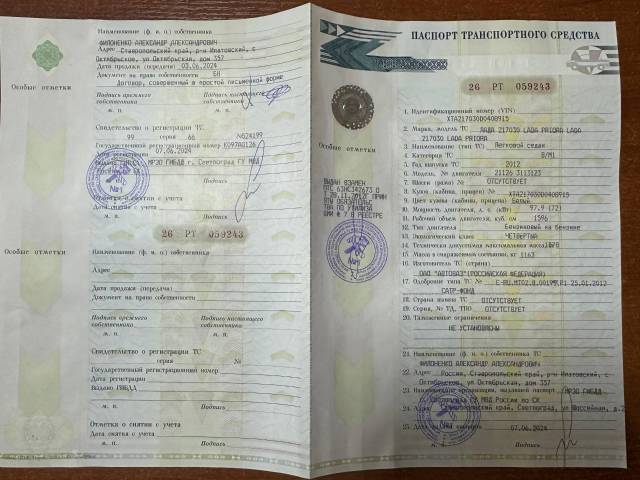 Наименование (ф. и. о.) собственника
ФИЛОНЕНКО АЛЕКСАНДР АЛЕКСАНДРОВИЧ
Адрес Ставропольский край, р-н Ипатовский, с
Октябрьское, ул Октябрьская, дом 357
Дата продажи (передачи) 03.06.2024
Документ на право собственности БН
Договор, совершенный в простой письменной форме
Подпись прежнего собственника
Подпись настоящего собственника
М. П.
М. П.
Особые отметки
Свидетельство о регистрации ТС
99 серия 66 №624199
Государственный регистрационный знак К097АО126
Дата регистрации 07.06.2024
Выдано ГИБДД МРЭО ГИБДД г. Светлоград ГУ МВД
Отметка о снятии с учета
Дата снятия с учета
М. П. Подпись
26 РТ 059243
Особые отметки
Наименование (ф. и. о.) собственника
Адрес
Дата продажи (передачи)
Документ на право собственности
Подпись прежнего собственника
Подпись настоящего собственника
М. П.
М. П.
Свидетельство о регистрации ТС
серия №
Государственный регистрационный номер
Дата регистрации
Выдано ГИБДД
М. П. Подпись
Отметка о снятии с учета
Дата снятия с учета
М. П. Подпись
ПАСПОРТ ТРАНСПОРТНОГО СРЕДСТВА
26 РТ 059243
1. Идентификационный номер (VIN)
XTA217030D0408915
2. Марка, модель ТС ЛАДА 217030 LADA PRIORA LADA
217030 LADA PRIORA
3. Наименование (тип ТС) Легковой седан
4. Категория ТС B/M1
5. Год выпуска ТС 2012
6. Модель, № двигателя 21126 3113125
7. Шасси (рама) № ОТСУТСТВУЕТ
8. Кузов (кабина, прицеп) № XTA217030D0408915
9. Цвет кузова (кабины, прицепа) Белый
10. Мощность двигателя, л. с. (кВт) 97.9 (72)
11. Рабочий объем двигателя, куб. см 1596
12. Тип двигателя Бензиновый на бензине
13. Экологический класс ЧЕТВЕРТЫЙ
14. Технически допустимая максимальная масса
15. Масса в снаряженном состоянии, кг 1163
16. Изготовитель ТС (страна)
ОАО "АВТОВАЗ"(РОССИЙСКАЯ ФЕДЕРАЦИЯ)
17. Одобрение типа ТС № 25.01.2012
САТР-ФОНД
18. Страна вывоза ТС ОТСУТСТВУЕТ
19. Серия, № ТД, ТПО ОТСУТСТВУЕТ
20. Таможенные ограничения
НЕ УСТАНОВЛЕНЫ
21. Наименование (ф. и. о.) собственника ТС
ФИЛОНЕНКО АЛЕКСАНДР АЛЕКСАНДРОВИЧ
22. Адрес Россия, Ставропольский край, р-н Ипатовский, с
Октябрьское, ул Октябрьская, дом 357
23. Наименование организации, выдавшей паспорт МРЭО ГИБДД
ГУ МВД России по СК
24. Адрес Ставропольский край, Светлоград, ул Шоссейная,
25. Дата выдачи паспорта 07.06.2024
М. П. Подпись
Особые отметки
ВЫДАН ВЗАМЕН